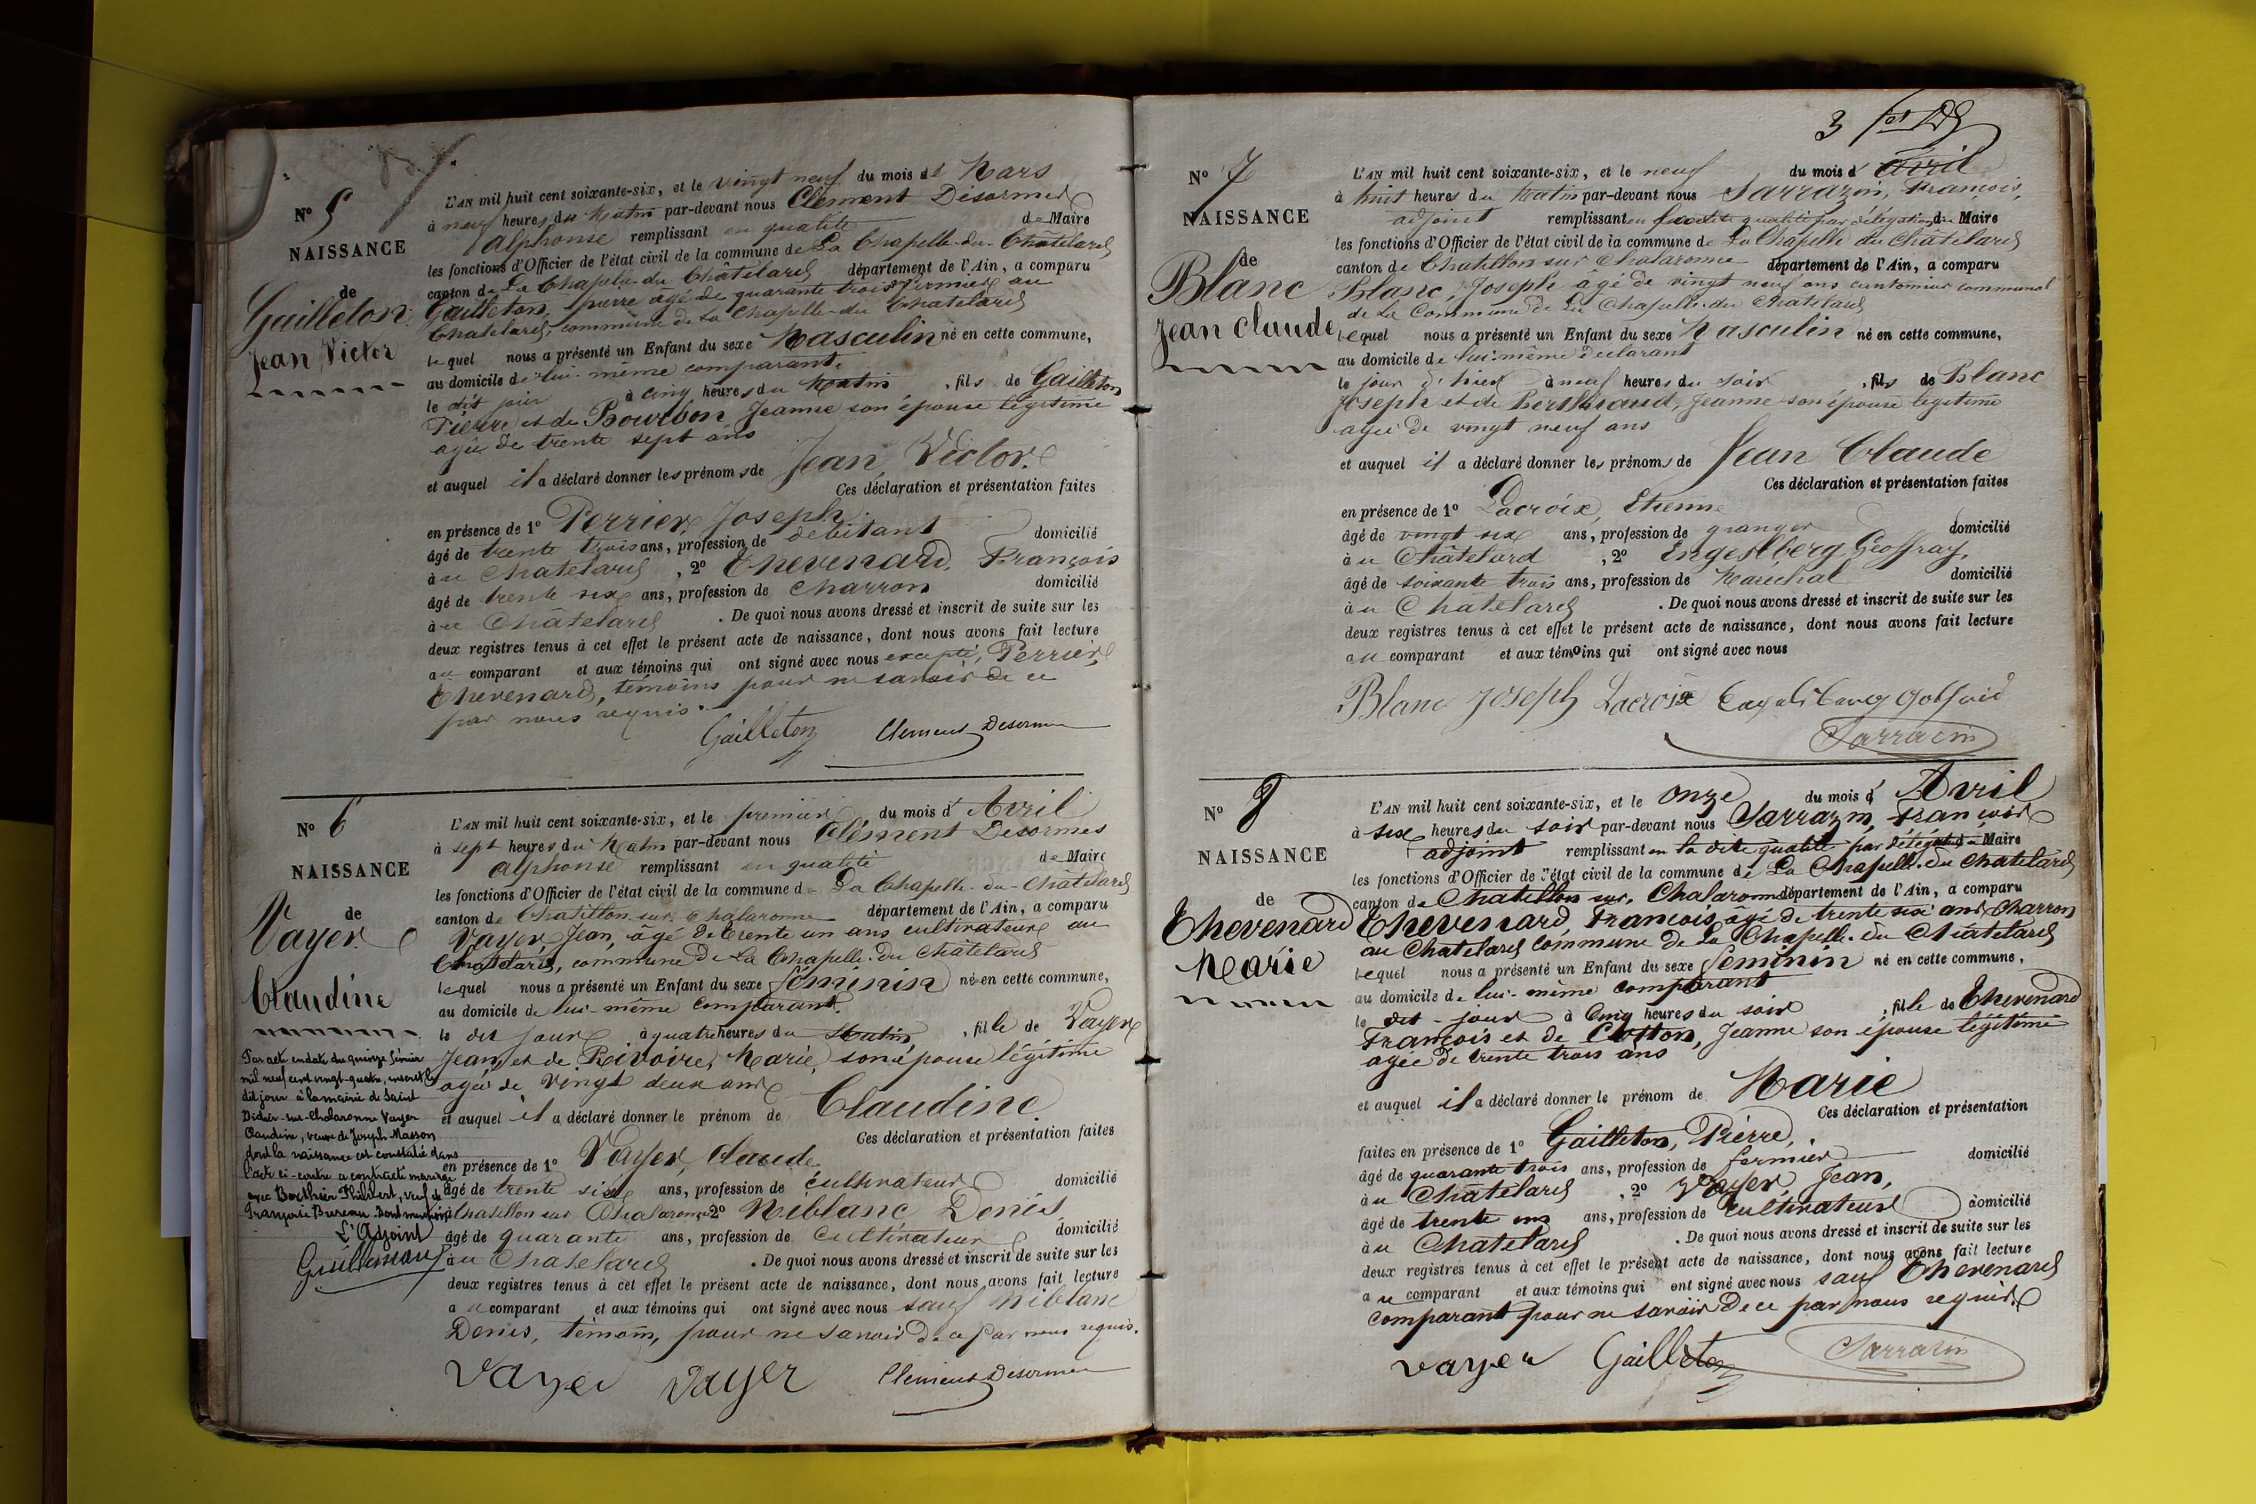 N° 5
NAISSANCE
de
Gailleton
Jean Victor
L'AN mil huit cent soixante-six, et le vingt neuf du mois de Mars
à neuf heures du Matin par-devant nous Clément Désormes
Alphonse remplissant en qualité de Maire
les fonctions d'Officier de l'état civil de la commune de La Chapelle-du-Châtelard
canton de La Chapelle-du-Châtelard département de l'Ain, a comparu
Gailleton, pierre âgé de quarante trois fermier au
Chatelard, commune de La Chapelle-du Chatelard
lequel nous a présenté un Enfant du sexe Masculin né en cette commune,
au domicile de lui-même comparant.
le dit jour à cinq heures du Matin, fils de Gailleton
Pierre et de Bourbon Jeanne son épouse légitime
agée de trente sept ans
et auquel il a déclaré donner les prénoms de Jean Victor.
Ces déclaration et présentation faites
en présence de 1° Perrier, Joseph
âgé de trente trois ans, profession de débitant domicilié
à au Chatelard, 2° Thevenard, François
âgé de trente six ans, profession de charron domicilié
à au Châtelard. De quoi nous avons dressé et inscrit de suite sur les
deux registres tenus à cet effet le présent acte de naissance, dont nous avons fait lecture
au comparant et aux témoins qui ont signé avec nous excepté, Perrier,
Thevenard, témoins pour ne savoir de ce
par nous requis.
Gailleton Clément Desormes
N° 6
NAISSANCE
de
Vayer
Claudine
L'AN mil huit cent soixante-six, et le premier du mois d'Avril
à sept heures du Matin par-devant nous Clément Desormes
Alphonse remplissant en qualité de Maire
les fonctions d'Officier de l'état civil de la commune de La Chapelle-du-Châtelard
canton de Chatillon sur Chalaronne département de l'Ain, a comparu
Vayer Jean, âgé de trente un ans cultivateur au
Chatelard, commune de La Chapelle-du Châtelard
lequel nous a présenté un Enfant du sexe féminin né en cette commune,
au domicile de lui-même comparant.
le dit jour à quatre heures du Matin, fille de Vayer
Jean, et de Rivoire, Marie, son épouse légitime
agée de Vingt deux ans
et auquel il a déclaré donner le prénom de Claudine.
Ces déclaration et présentation faites
en présence de 1° Vayer, Claude
âgé de trente six ans, profession de cultivateur domicilié
à Chatillon sur Chalaronne 2° Niblanc Denis
âgé de quarante ans, profession de cultivateur domicilié
à au Chatelard. De quoi nous avons dressé et inscrit de suite sur les
deux registres tenus à cet effet le présent acte de naissance, dont nous avons fait lecture
au comparant et aux témoins qui ont signé avec nous sauf Niblanc
Denis, témoin, pour ne savoir de ce par nous requis.
Vayer Vayer Clément Desormes
Par acte en date du quinze février
mil neuf cent vingt-quatre, inscrit le
dit jour à la mairie de Saint
Didier-sur-Chalaronne Vayer
Claudine, veuve de Joseph Masson
dont la naissance est constatée dans
l'acte ci-contre a contracté mariage
avec Berthier Philibert, veuf de
Françoise Bureau. Dont mention
L'Adjoint
Guillemau
3
N° 7
NAISSANCE
de
Blanc
Jean Claude
L'AN mil huit cent soixante-six, et le neuf du mois d'avril
à huit heures du Matin par-devant nous Sarrazin, François,
adjoint remplissant en qualité par délégation de Maire
les fonctions d'Officier de l'état civil de la commune de La Chapelle du Châtelard
canton de Chatillon sur Chalaronne département de l'Ain, a comparu
Blanc, Joseph âgé de vingt neuf ans cantonnier communal
de La Commune de La Chapelle-du Chatelard
lequel nous a présenté un Enfant du sexe Masculin né en cette commune,
au domicile de lui-même déclarant
le jour d'hier à neuf heures du soir, fils de Blanc
Joseph et de Berthaud, Jeanne son épouse légitime
agée de vingt neuf ans
et auquel il a déclaré donner les prénoms de Jean Claude
Ces déclaration et présentation faites
en présence de 1° Lacroix, Etienne
âgé de vingt six ans, profession de granger domicilié
à au Châtelard, 2° Engeslberg Geoffray,
âgé de soixante trois ans, profession de Maréchal domicilié
à au Châtelard. De quoi nous avons dressé et inscrit de suite sur les
deux registres tenus à cet effet le présent acte de naissance, dont nous avons fait lecture
au comparant et aux témoins qui ont signé avec nous
Blanc Joseph Lacroix
Sarrazin
N° 8
NAISSANCE
de
Thevenard
Marie
L'AN mil huit cent soixante-six, et le onze du mois d'Avril
à six heures du soir par-devant nous Sarrazin, François
adjoint remplissant en la dite qualité par délégation du Maire
les fonctions d'Officier de l'état civil de la commune de La Chapelle-du Chatelard
canton de Chatillon sur Chalaronne département de l'Ain, a comparu
Thevenard, François, âgé de trente six ans Charron
au Chatelard commune de La Chapelle-du Châtelard
lequel nous a présenté un Enfant du sexe féminin né en cette commune,
au domicile de lui-même comparant
le dit-jour à Cinq heures du soir, fille de Thevenard
François et de Cotton, Jeanne son épouse légitime
agée de trente trois ans
et auquel il a déclaré donner le prénom de Marie
Ces déclaration et présentation
faites en présence de 1° Gailleton, Pierre,
âgé de quarante trois ans, profession de fermier domicilié
à au Châtelard, 2° Vayer Jean,
âgé de trente un ans, profession de cultivateur domicilié
à au Chatelard. De quoi nous avons dressé et inscrit de suite sur les
deux registres tenus à cet effet le présent acte de naissance, dont nous avons fait lecture
au comparant et aux témoins qui ont signé avec nous sauf Thevenard
comparant pour ne savoir de ce par nous requis.
Vayer Gailleton Sarrazin